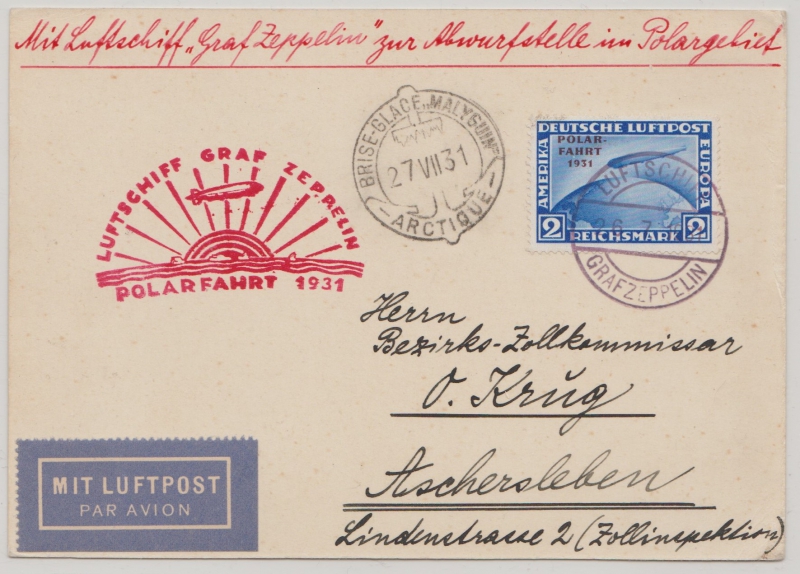 Mit Luftschiff „Graf Zeppelin" zur Abwurfstelle im Polargebiet
LUFTSCHIFF GRAF ZEPPELIN
POLARFAHRT 1931
BRISE-GLACE „MALYGUIN"
27 VII 31
— ARCTIQUE —
DEUTSCHE LUFTPOST
POLAR-
FAHRT
1931
AMERIKA
EUROPA
2 REICHSMARK 2
LUFTSCHIFF
26. 7.
GRAF ZEPPELIN
Herrn
Bezirks-Zollkommissar
O. Krug
Aschersleben
Lindenstrasse 2 (Zollinspektion)
MIT LUFTPOST
PAR AVION